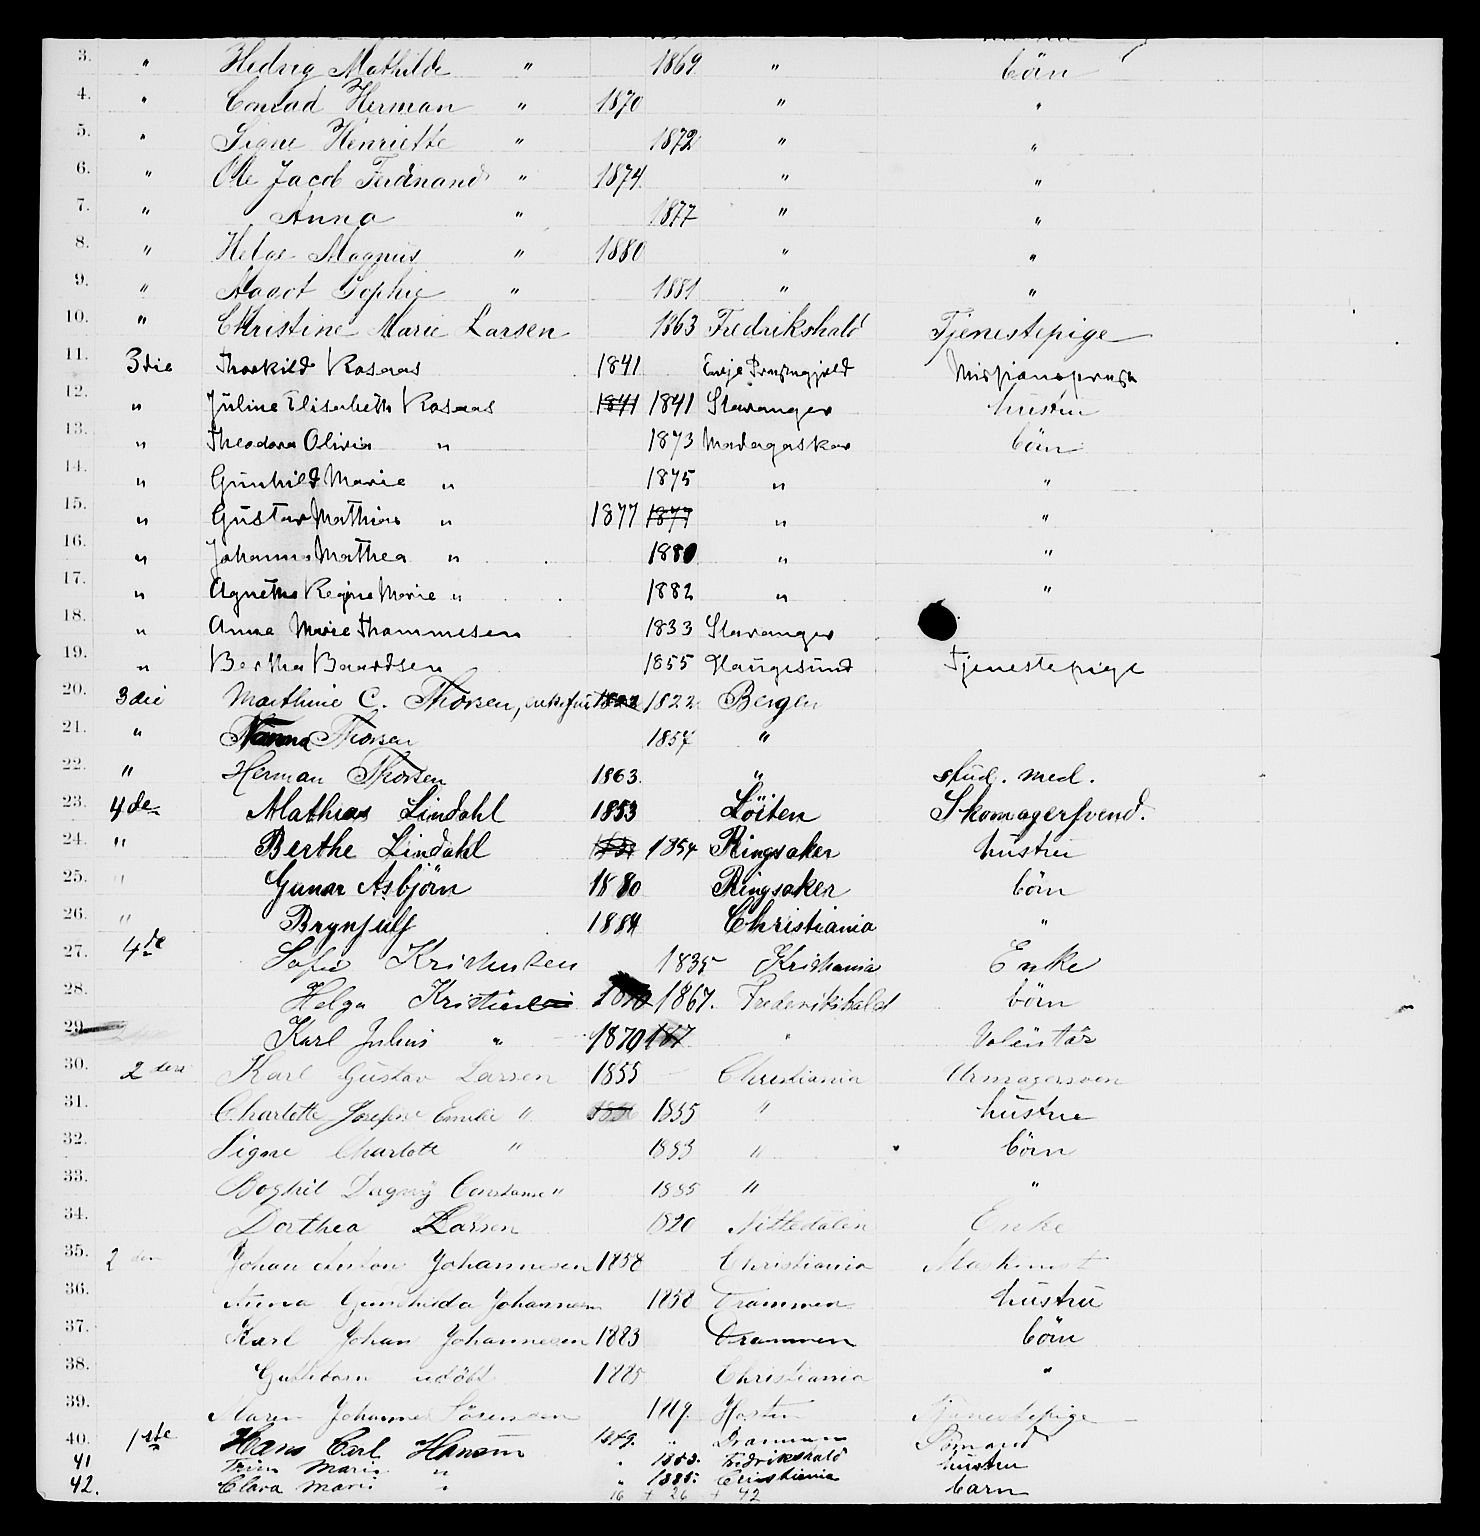 3. " Hedvig Mathilde " 1869 " börn
4. " Conrad Herman " 1870 " "
5. " Signe Henriette " 1872 " "
6. " Ole Jacob Ferdinand " 1874 " "
7. " Anna " 1877 " "
8. " Helge Magnus " 1880 " "
9. " Aagot Sophie " 1881 " "
10. " Christine Marie Larsen 1863 Fredrikshald Tjenestepige
11. 3die Thorkild Rosaas 1841
12. " Juline Elisabeth Rosaas 1841 1841 Stavanger hustru
13. " Theodora Olivia " 1873 Madagaskar börn
14. " Gunhild Marie " 1875 " "
15. " Gustav Mathias " 1877 1877 " "
16. " Johanna Mathea " 1880 " "
17. " Agnethe Regine Marie " 1882 " "
18. " Anna Marie Thommesen 1833 Stavanger
19. " Bertha Baardsen 1855 Haugesund Tjenestepige
20. 3die Marthine C. Thorsen, 1822 1822 Bergen
21. " Nanna Thorsen 1857 "
22. " Herman Thorsen 1863. " stud. med.
23. 4de Mathias Lindahl 1853 Löiten Skomagersvend.
24. " Berthe Lindahl 1854 Ringsaker hustru
25. " Gunar Asbjörn 1880 Ringsaker börn
26. " Brynjulf 1884 Christiania "
27. 4de Sofie Kristensen 1835 Kristiania Enke
28. Helga 1867. Frederikshald börn
29. Karl Julius " 1870 187 " Volentär
30. 2den Karl Gustav Larsen 1855 Christiania Urmagersven
31. Charlotte Josefine Emilie " 1855 " hustru
32. Signe Charlotte " 1883 " börn
33. Boghil Dagny Constance " 1885 " "
34. Dorthea Larsen 1820 Nittedalen Enke
35. 2den Johan Anton Johannesen 1858 Christiania Maskinist
36. Anna Gunhilda Johannesen 1858 Drammen hustru
37. Karl Johan Johannesen 1883 Drammen börn
38. Guttebarn udöbt 1885 Christiania "
39. Maren Johannes Tjenestepige
40. 1ste Hans Carl Hansen 1849. " Drammen
41 Marie " " 1853. Fredrikshald hustru
42. Clara Marie " " 1885. Cristiania barn
16 + 26 + 42